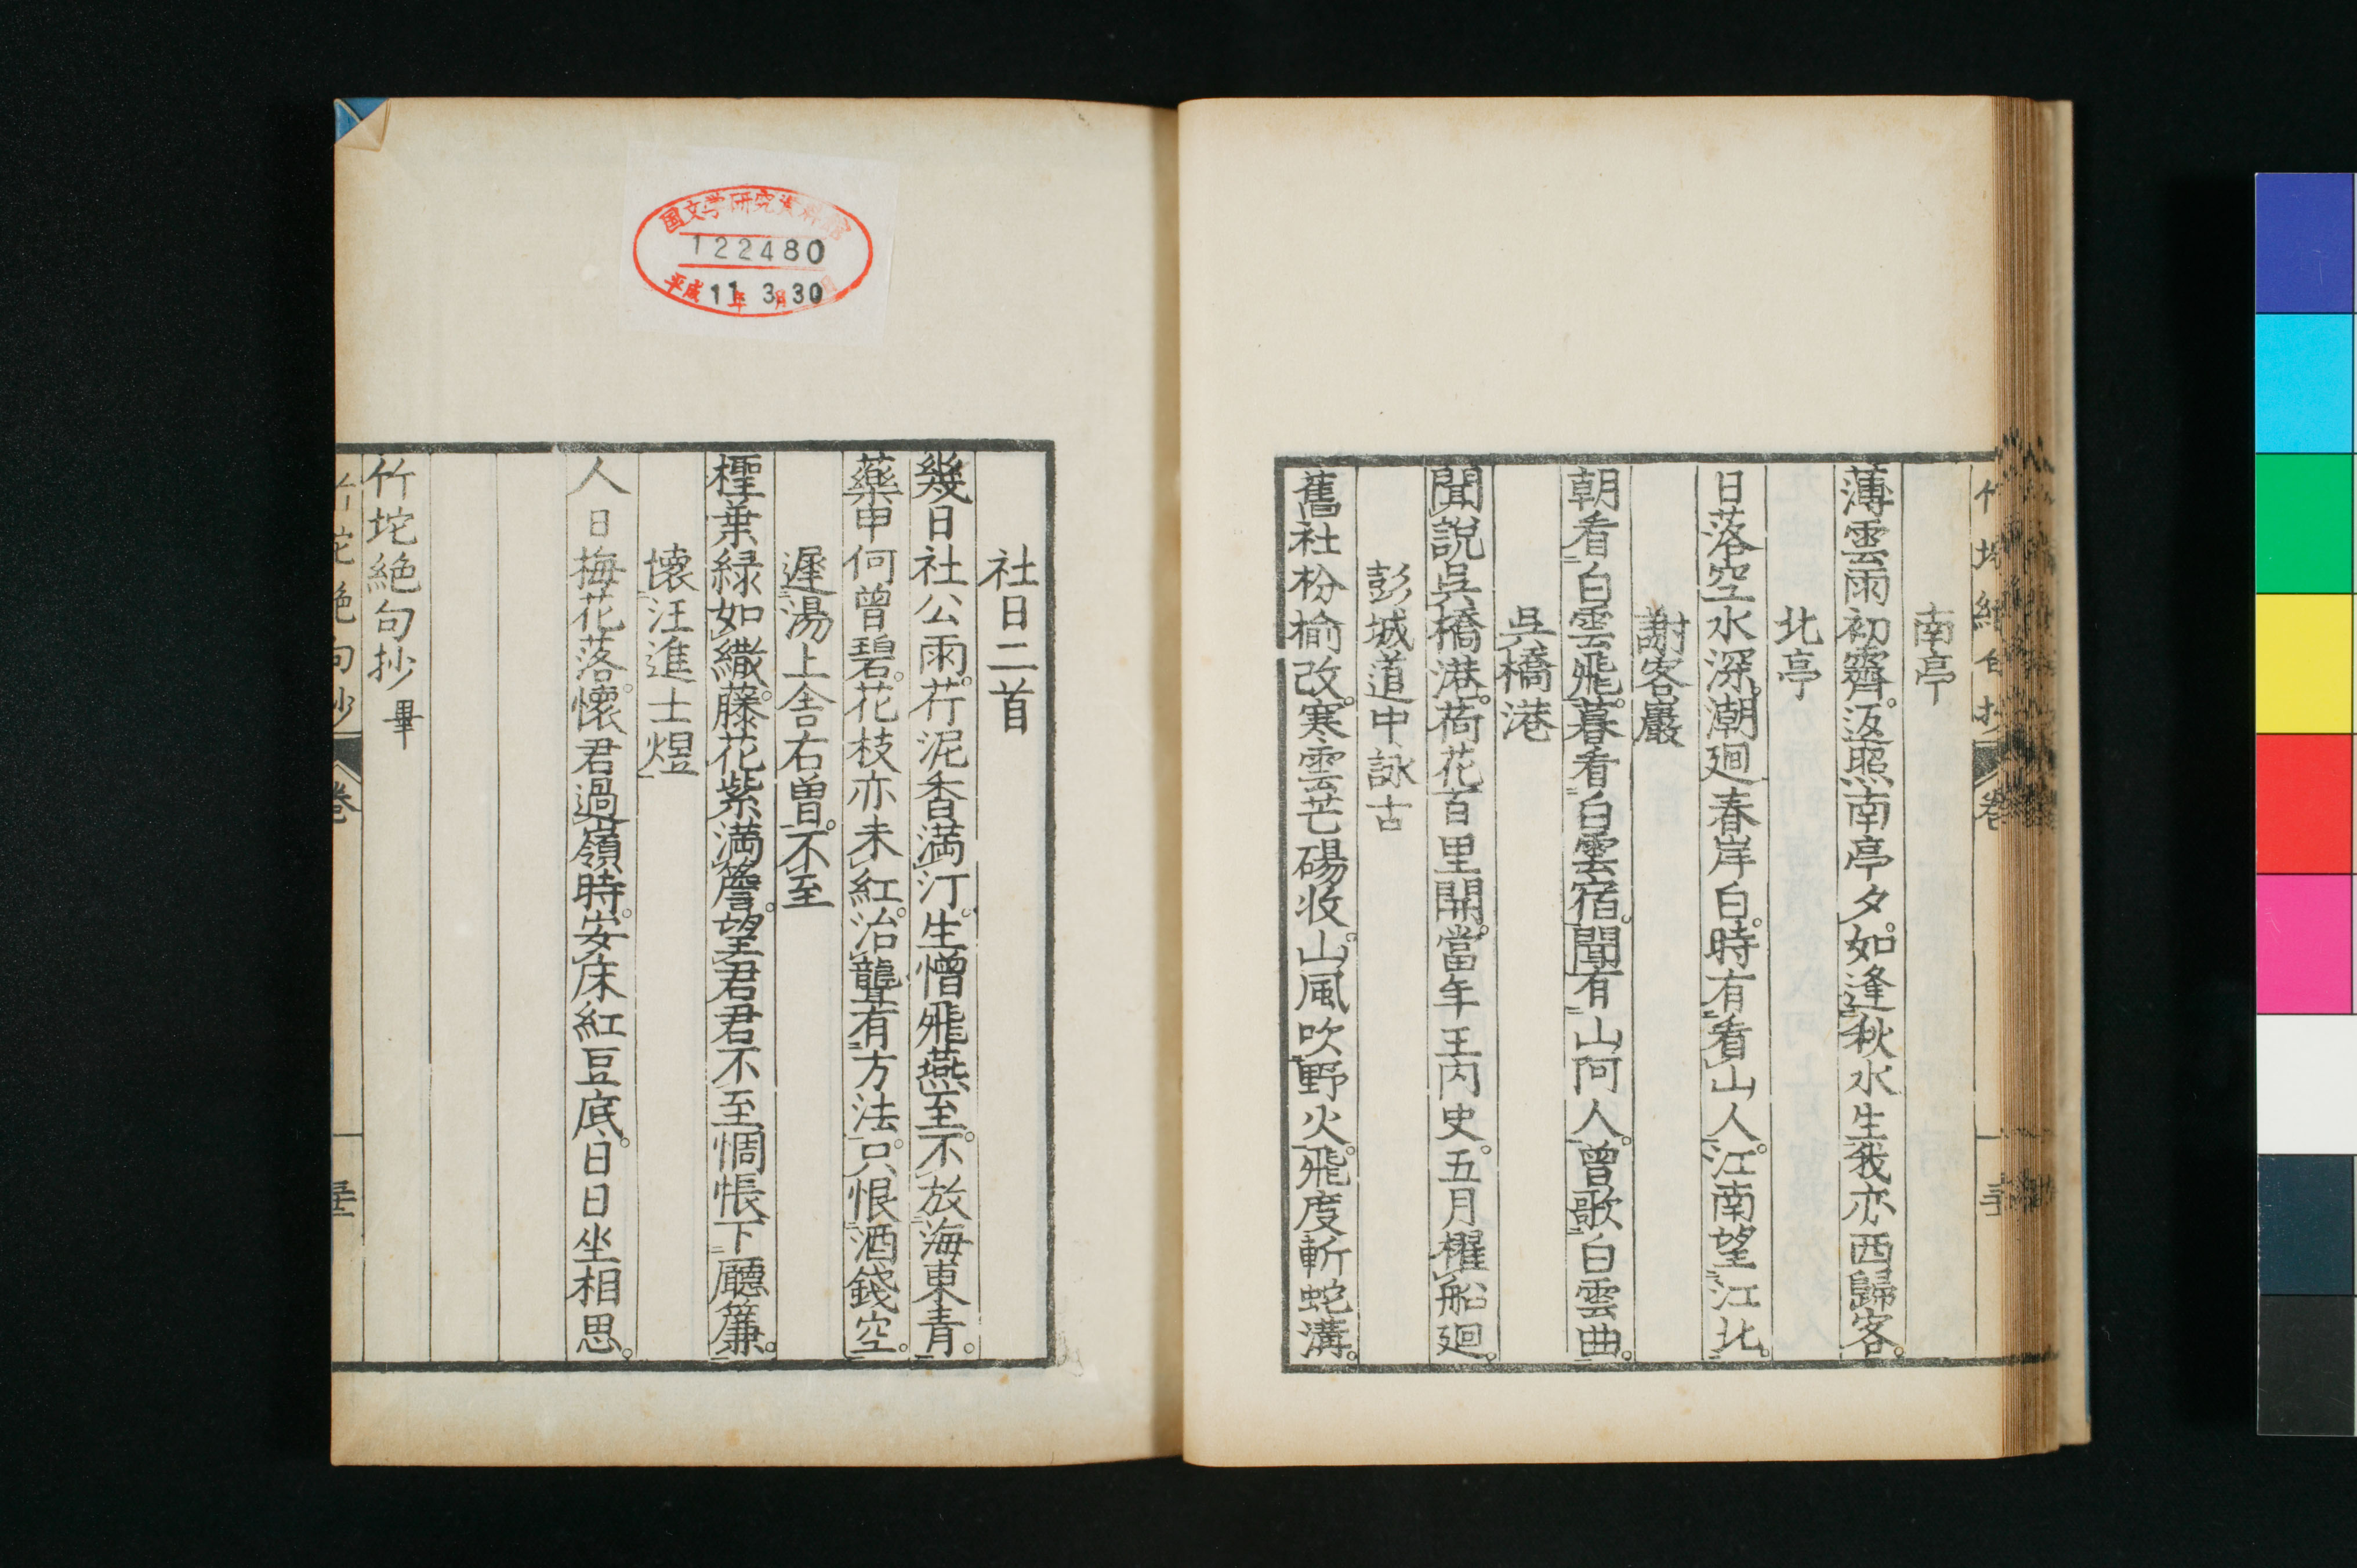 南亭
薄雲雨初霽。返照南亭夕。如逢秋水生我亦西歸客。
北亭
日落空水深。潮廻春岸白。時有看山人。江南望江北。
謝客巖
朝看白雲飛。暮看白雲宿。聞有山阿人。曾歌白雲曲。
吳橋港
聞說吳橋港。荷花百里開。當年王內史。五月櫂船廻。
彭城道中詠古
舊社枌榆改。寒雲芒碭收。山風吹野火。飛度斬蛇溝。
社日二首
幾日社公雨。芹泥香満汀。生憎飛燕至。不放海東青。
藥甲何曾碧。花枝亦未紅。治聾有方法。只恨酒錢空。
遲湯上舍右曽。不至
檉葉緑如繖。藤花紫満簷。望君君不至惆悵下廳簾。
懷汪進士煜
人日梅花落。懷君過嶺時。安床紅豆底。日日坐相思。
竹垞絶句抄畢
竹垞絶句抄 卷
国文学研究資料館
122480
平成11年3月30